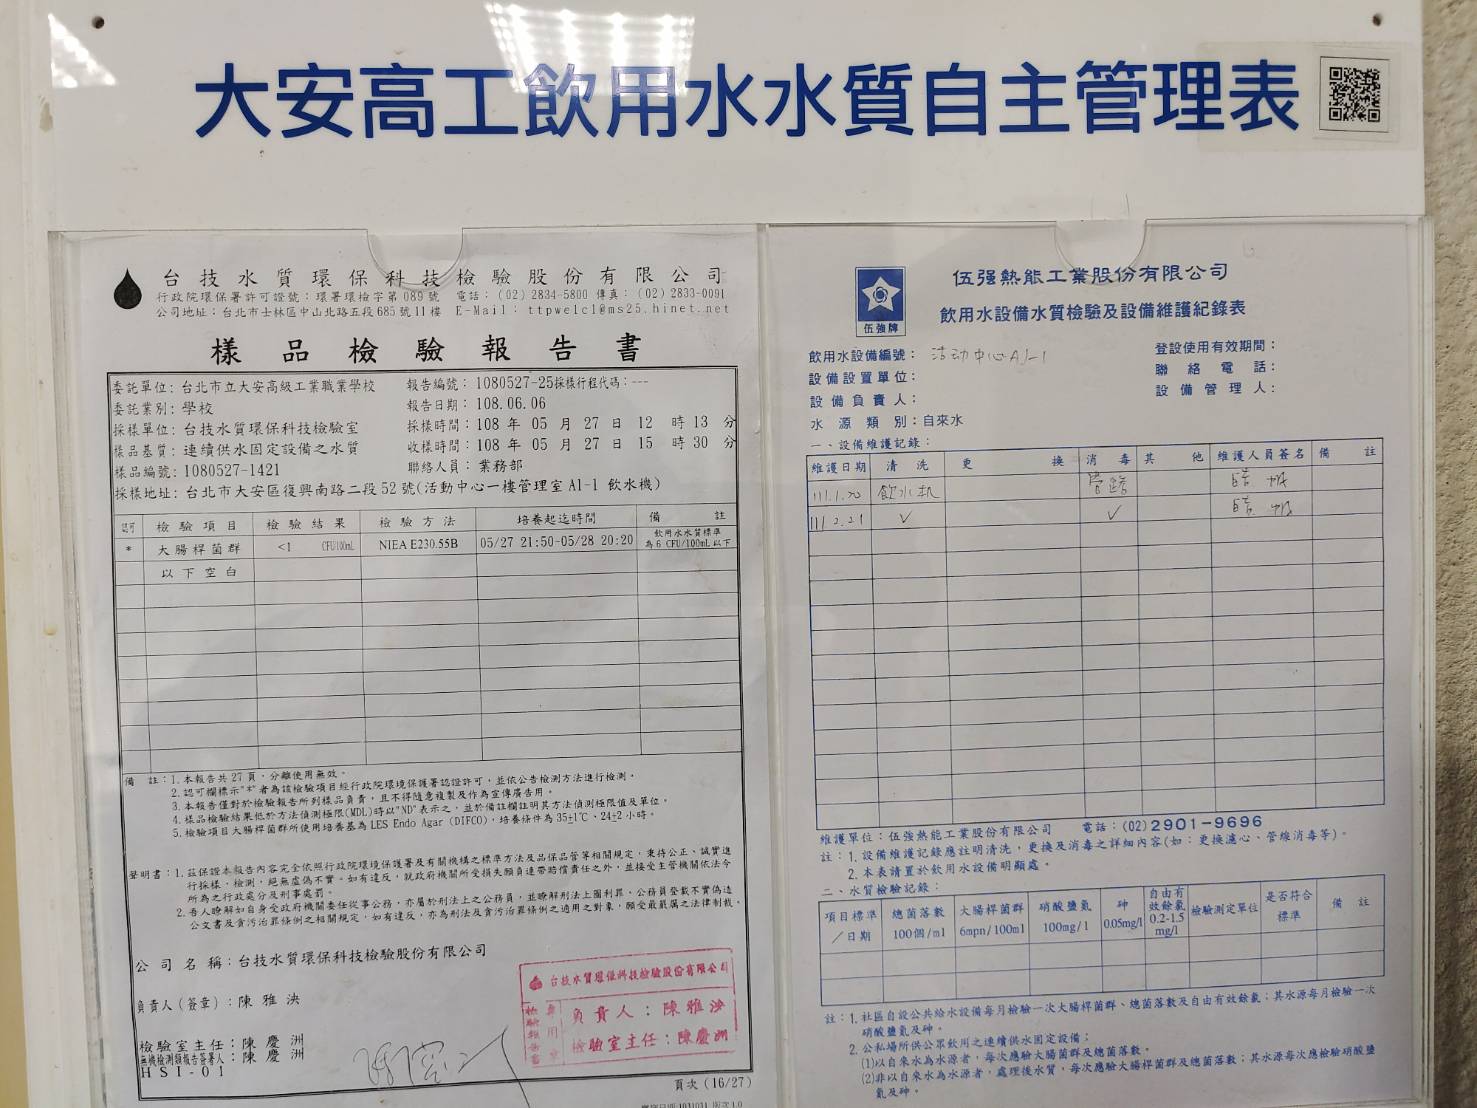 大安高工飲用水水質自主管理表
台技水質環保科技檢驗股份有限公司
行政院環保署許可證號：環署環檢字第089號 電話：(02)2834-5800 傳真：(02)2833-0091
公司地址：台北市士林區中山北路五段685號11樓 E-Mail：ttpwelcl@ms25.hinet.net
樣品檢驗報告書
委託單位：台北市立大安高級工業職業學校 報告編號：1080527-25採樣行程代碼：---
委託業別：學校 報告日期：108.06.06
採樣單位：台技水質環保科技檢驗室 採樣時間：108年05月27日12時13分
樣品基質：連續供水固定設備之水質 收樣時間：108年05月27日15時30分
樣品編號：1080527-1421 聯絡人員：業務部
採樣地址：台北市大安區復興南路二段52號(活動中心一樓管理室A1-1飲水機)
認可 檢驗項目 檢驗結果 檢驗方法 培養起迄時間 備註
* 大腸桿菌群 <1 CFU/100mL NIEA E230.55B 05/27 21:50-05/28 20:20 飲用水水質標準為6 CFU/100mL以下
以下空白
備註：1.本報告共27頁，分離使用無效。
2.認可欄標示"*"者為該檢驗項目經行政院環境保護署認證許可，並依公告檢測方法進行檢測。
3.本報告僅對於檢驗報告所列樣品負責，且不得隨意複製及作為宣傳廣告用。
4.樣品檢驗結果低於方法偵測極限(MDL)時以"ND"表示之，並於備註欄註明其方法偵測極限值及單位。
5.檢驗項目大腸桿菌群所使用培養基為LES Endo Agar (DIFCO)，培養條件為35±1℃、24±2小時。
聲明書：1.茲保證本報告內容完全依照行政院環境保護署及有關機構之標準方法及品保品管等相關規定，秉持公正、誠實進
行採樣、檢測，絕無虛偽不實。如有違反，就政府機關所受損失願負連帶賠償責任之外，並接受主管機關依法令
所為之行政處分及刑事處罰。
2.吾人瞭解如自身受政府機關委任從事公務，亦屬於刑法上之公務員，並瞭解刑法上圖利罪、公務員登載不實偽造
公文書及貪污治罪條例之相關規定，如有違反，亦為刑法及貪污治罪條例之適用之對象，願受最嚴厲之法律制裁。
公司名稱：台技水質環保科技檢驗股份有限公司
負責人(簽章)：陳雅泱
檢驗室主任：陳慶洲
無機檢測類報告簽署人：陳慶洲
HSI-01
台技水質環保科技檢驗股份有限公司
檢驗報告書專用章
負責人：陳雅泱
檢驗室主任：陳慶洲
頁次(16/27)
伍強牌
伍强熱能工業股份有限公司
飲用水設備水質檢驗及設備維護紀錄表
飲用水設備編號：活动中心A1-1 登設使用有效期間：
設備設置單位： 聯絡電話：
設備負責人： 設備管理人：
水源類別：自來水
一、設備維護記錄：
維護日期 清洗 更換 消毒 其他 維護人員簽名 備註
111.1.20 飲水机 管路
111.2.21 ✓ ✓
維護單位：伍强熱能工業股份有限公司 電話：(02)2901-9696
註：1.設備維護記錄應註明清洗，更換及消毒之詳細內容(如：更換濾心、管線消毒等)。
2.本表請置於飲用水設備明顯處。
二、水質檢驗記錄：
項目標準／日期 總菌落數100個/ml 大腸桿菌群6mpn/100ml 硝酸鹽氮100mg/l 砷0.05mg/l 自由有效餘氯0.2-1.5mg/l 檢驗測定單位 是否符合標準 備註
註：1.社區自設公共給水設備每月檢驗一次大腸桿菌群、總菌落數及自由有效餘氯；其水源每月檢驗一次
硝酸鹽氮及砷。
2.公私場所供公眾飲用之連續供水固定設備：
(1)以自來水為水源者，每次應驗大腸菌群及總菌落數。
(2)非以自來水為水源者，處理後水質，每次應驗大腸桿菌群及總菌落數；其水源每次應檢驗硝酸鹽
氮及砷。